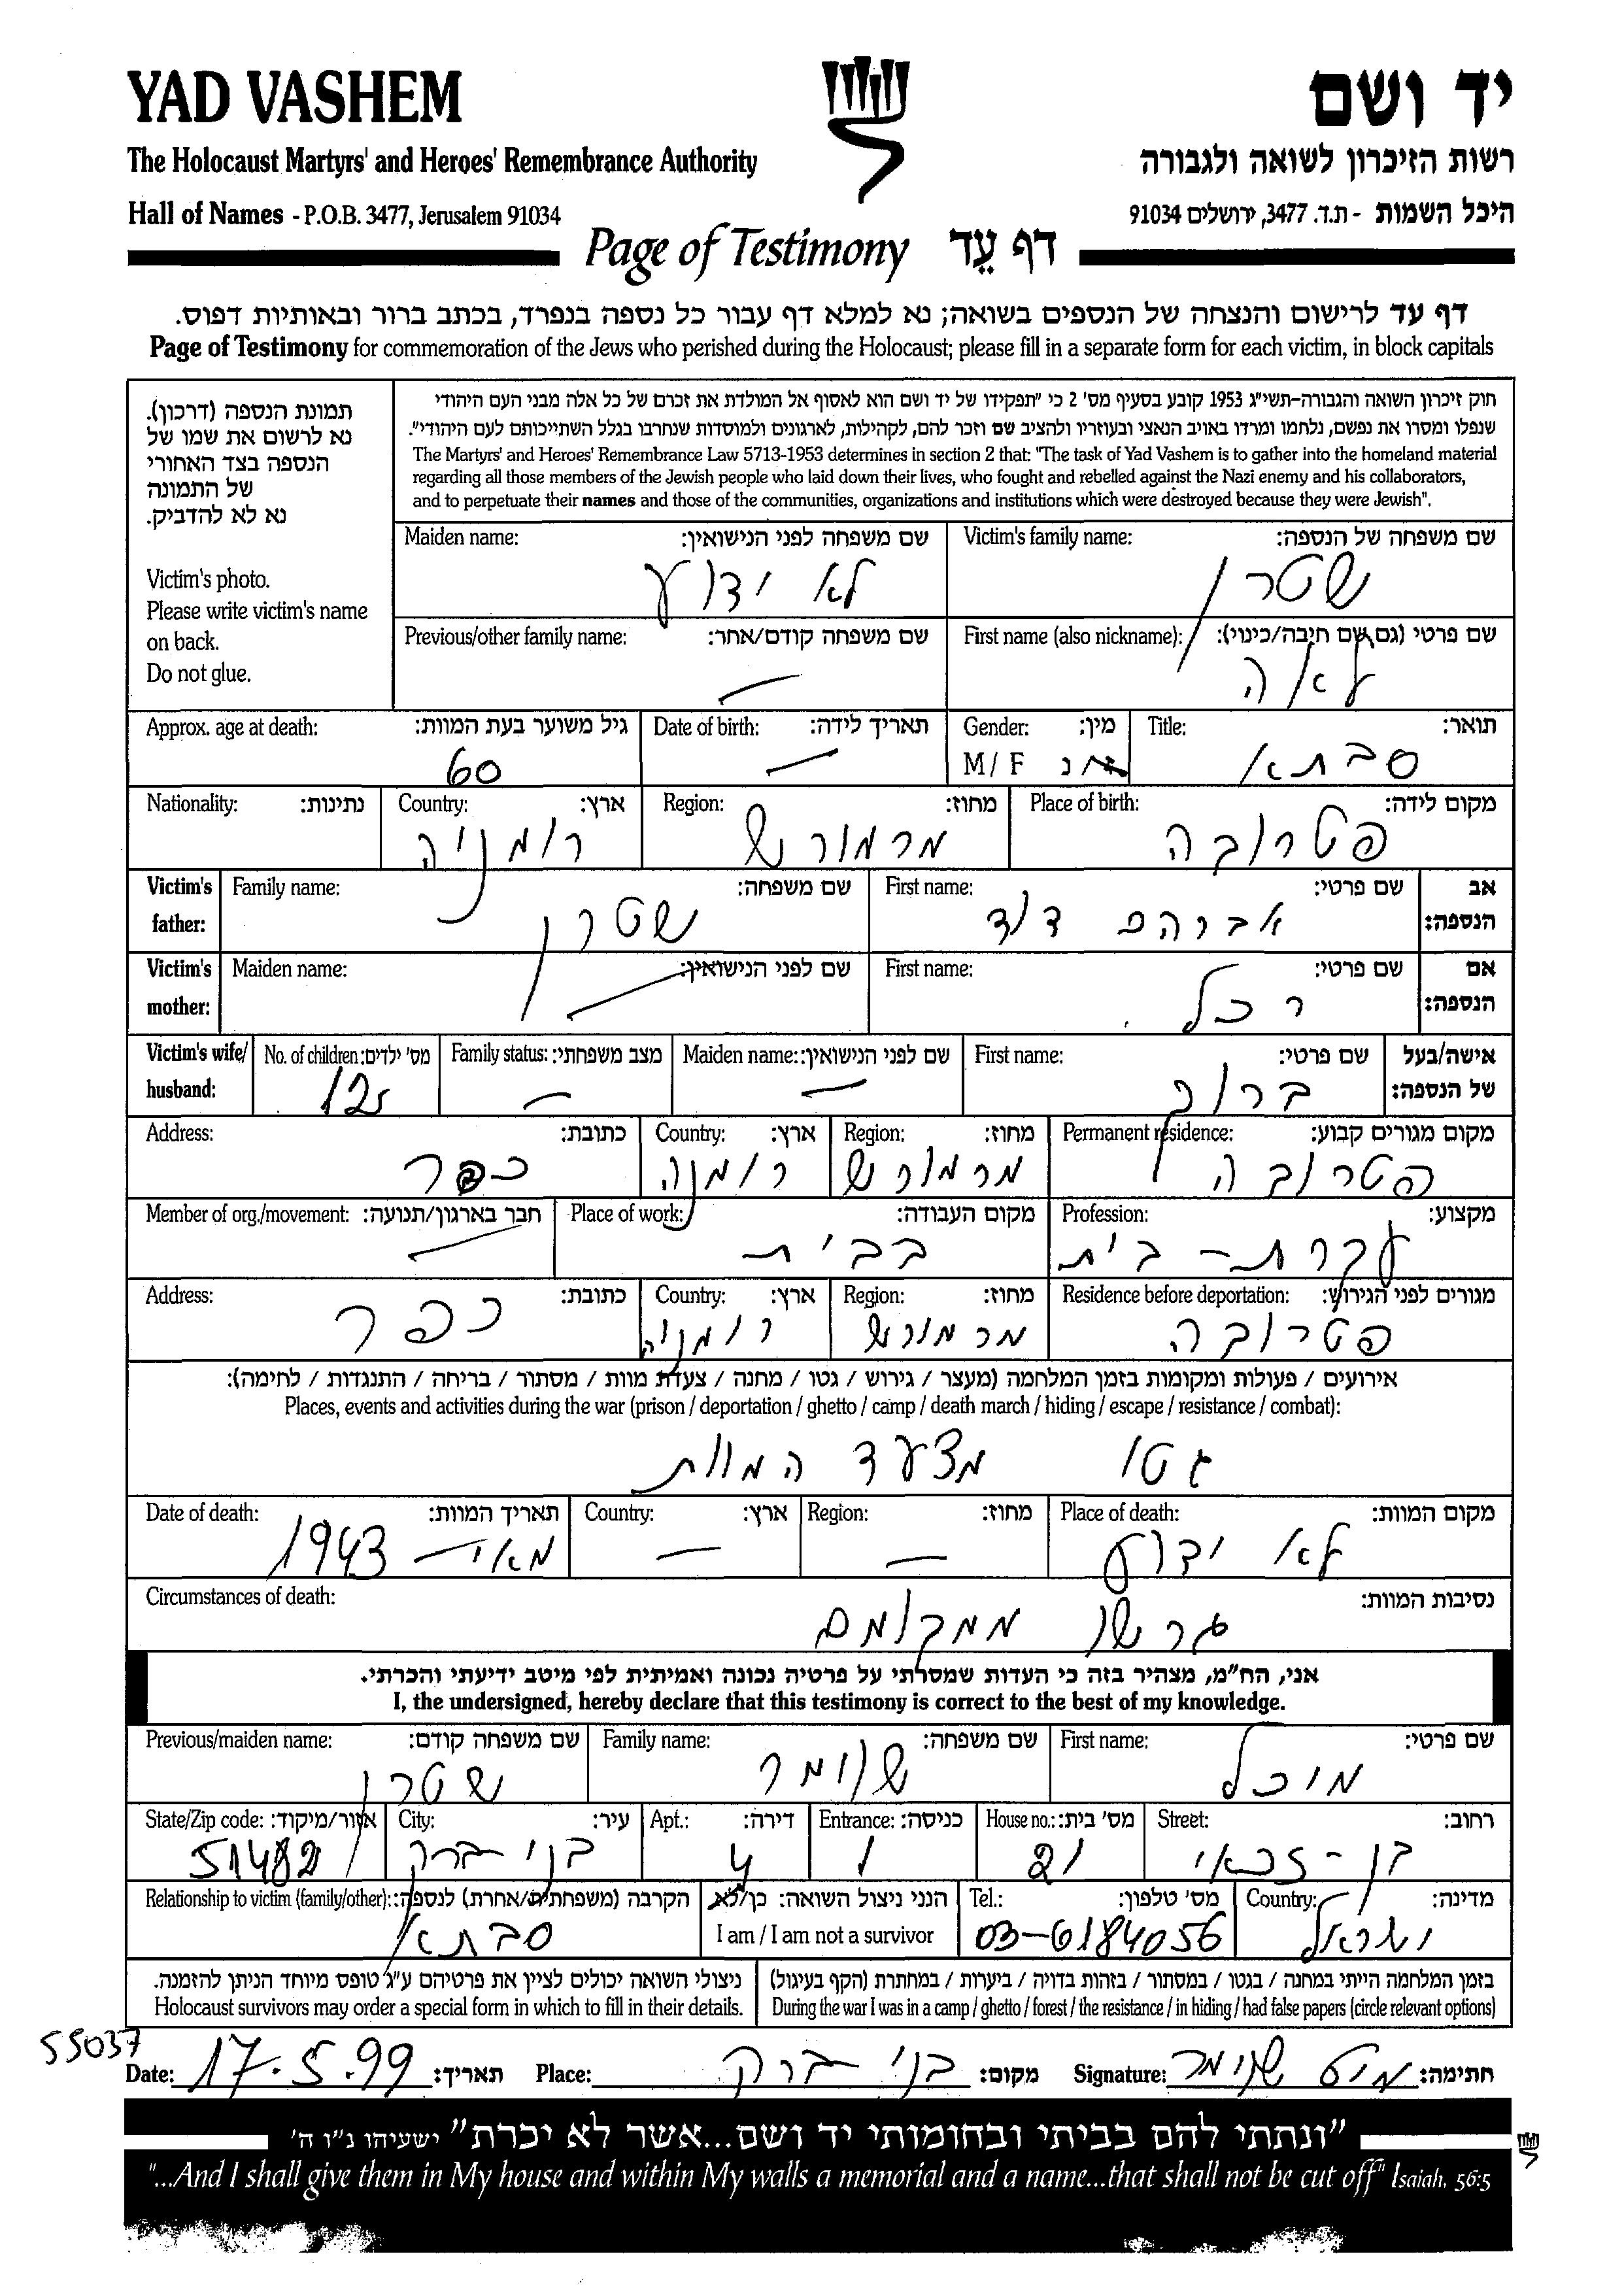 YAD VASHEM
יד ושם
The Holocaust Martyrs' and Heroes' Remembrance Authority
רשות הזיכרון לשואה ולגבורה
Hall of Names - P.O.B. 3477, Jerusalem 91034
היכל השמות - ת.ד. 3477, ירושלים 91034
Page of Testimony דף עֵד
דף עד לרישום והנצחה של הנספים בשואה; נא למלא דף עבור כל נספה בנפרד, בכתב ברור ובאותיות דפוס.
Page of Testimony for commemoration of the Jews who perished during the Holocaust; please fill in a separate form for each victim, in block capitals
תמונת הנספה (דרכון).
נא לרשום את שמו של
הנספה בצד האחורי
של התמונה
נא לא להדביק.
Victim's photo.
Please write victim's name
on back.
Do not glue.
חוק זיכרון השואה והגבורה-תשי"ג 1953 קובע בסעיף מס' 2 כי "תפקידו של יד ושם הוא לאסוף אל המולדת את זכרם של כל אלה מבני העם היהודי
שנפלו ומסרו את נפשם, נלחמו ומרדו באויב הנאצי ובעוזריו ולהציב שם וזכר להם, לקהילות, לארגונים ולמוסדות שנחרבו בגלל השתייכותם לעם היהודי".
The Martyrs' and Heroes' Remembrance Law 5713-1953 determines in section 2 that: "The task of Yad Vashem is to gather into the homeland material
regarding all those members of the Jewish people who laid down their lives, who fought and rebelled against the Nazi enemy and his collaborators,
and to perpetuate their names and those of the communities, organizations and institutions which were destroyed because they were Jewish".
שם משפחה של הנספה: Victim's family name: שם משפחה לפני הנישואין: Maiden name:
שטרן לא ידוע
שם פרטי (גם שם חיבה/כינוי): First name (also nickname): שם משפחה קודם/אחר: Previous/other family name:
לאה —
תואר: Title: מין: Gender: תאריך לידה: Date of birth: גיל משוער בעת המוות: Approx. age at death:
סבתא ז/נ M / F — 60
מקום לידה: Place of birth: מחוז: Region: ארץ: Country: נתינות: Nationality:
פטרובה מרמורש רומניה
אב הנספה: שם פרטי: First name: שם משפחה: Family name: Victim's father:
אברהם דוד שטרן
אם הנספה: שם פרטי: First name: שם לפני הנישואין: Maiden name: Victim's mother:
רכל —
אישה/בעל של הנספה: שם פרטי: First name: שם לפני הנישואין: Maiden name: מצב משפחתי: Family status: מס' ילדים: No. of children: Victim's wife/ husband:
ברוך — —
מקום מגורים קבוע: Permanent residence: מחוז: Region: ארץ: Country: כתובת: Address:
פטרובה מרמורש רומניה כפר
מקצוע: Profession: מקום העבודה: Place of work: חבר בארגון/תנועה: Member of org./movement:
עקרת - בית בבית —
מגורים לפני הגירוש: Residence before deportation: מחוז: Region: ארץ: Country: כתובת: Address:
פטרובה מרמורש רומניה כפר
אירועים / פעולות ומקומות בזמן המלחמה (מעצר / גירוש / גטו / מחנה / צעדת מוות / מסתור / בריחה / התנגדות / לחימה):
Places, events and activities during the war (prison / deportation / ghetto / camp / death march / hiding / escape / resistance / combat):
גטו מצעד המוות
מקום המוות: Place of death: מחוז: Region: ארץ: Country: תאריך המוות: Date of death:
לא ידוע — — מאי - 1943
נסיבות המוות: Circumstances of death:
גרשו ממקומם
אני, הח"מ, מצהיר בזה כי העדות שמסרתי על פרטיה נכונה ואמיתית לפי מיטב ידיעתי והכרתי.
I, the undersigned, hereby declare that this testimony is correct to the best of my knowledge.
שם פרטי: First name: שם משפחה: Family name: שם משפחה קודם: Previous/maiden name:
מיכל שנומר שטרן
רחוב: Street: מס' בית: House no.: כניסה: Entrance: דירה: Apt.: עיר: City: אזור/מיקוד: State/Zip code:
בן - זכאי 21 1 4 בני ברק 51482
מדינה: Country: מס' טלפון: Tel.: הנני ניצול השואה: כן/לא הקרבה (משפחתית/אחרת) לנספה: Relationship to victim (family/other):
ישראל 03-6184056 I am / I am not a survivor סבתא
בזמן המלחמה הייתי במחנה / בגטו / במסתור / בזהות בדויה / ביערות / במחתרת (הקף בעיגול)
During the war I was in a camp / ghetto / forest / the resistance / in hiding / had false papers (circle relevant options)
ניצולי השואה יכולים לציין את פרטיהם ע"ג טופס מיוחד הניתן להזמנה.
Holocaust survivors may order a special form in which to fill in their details.
55037
חתימה: Signature: מקום: בני ברק Place: תאריך: 17.5.99 Date:
"ונתתי להם בביתי ובחומותי יד ושם...אשר לא יכרת" ישעיהו נ"ו ה'
"...And I shall give them in My house and within My walls a memorial and a name...that shall not be cut off" Isaiah, 56:5